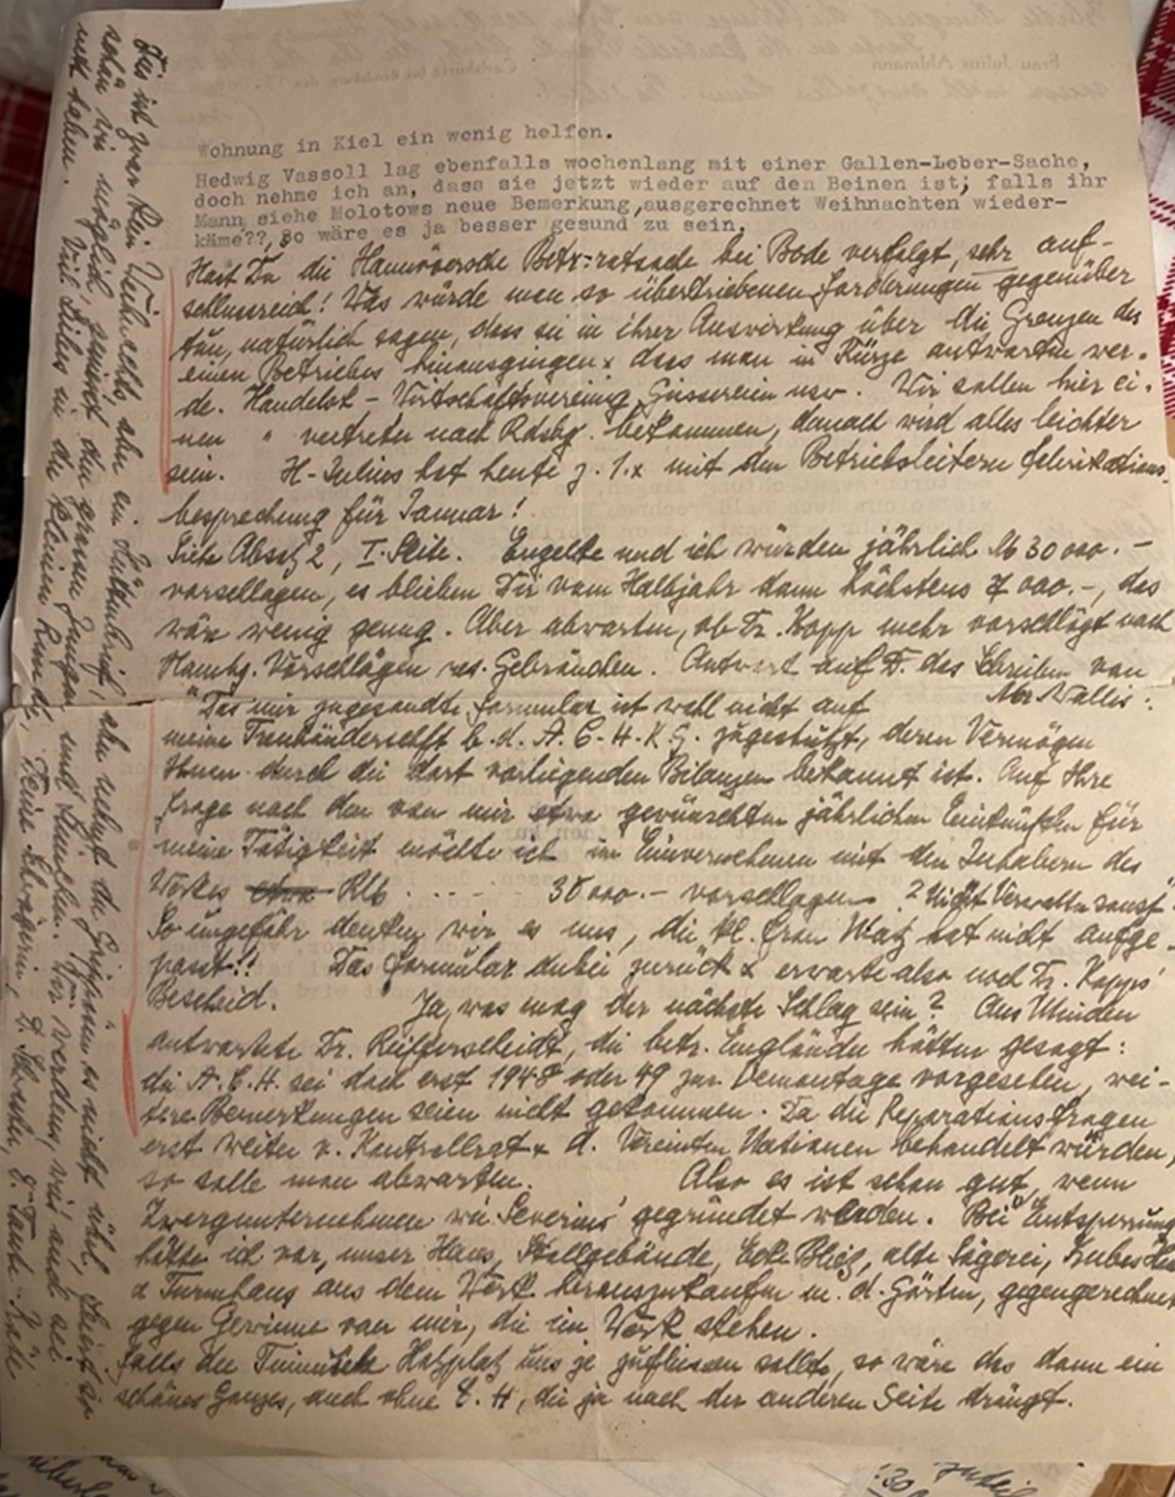 Frau Julius Ahlmann
Wohnung in Kiel ein wenig helfen.
Hedwig Vassoll lag ebenfalls wochenlang mit einer Gallen-Leber-Sache,
doch nehme ich an, dass sie jetzt wieder auf den Beinen ist; falls ihr
Mann, siehe Molotows neue Bemerkung, ausgerechnet Weihnachten wieder-
käme??, So wäre es ja besser gesund zu sein.
Hast Du die Hannöversche Betr=ratsache bei Bode verfolgt, sehr auf-
schlussreich! Was würde man so übertriebenen Forderungen gegenüber
tun, natürlich sagen, dass sie in ihrer Auswirkung über die Grenzen des
einen Betriebes hinausgingen & dass man in Kürze antworten wer-
de. Handelsk - Wirtschaftsvereinig Giesserein usw. Wir sollen hier ei-
nen " vertreter nach Rdsbg. bekommen, danach wird alles leichter
sein. H-Julius hat heute z. 1. x mit den Betriebsleitern Fabrikations-
besprechung für Januar!
Siehe Absatz 2, I. Seite. Engelke und ich würden jährlich M 30 000.-
vorschlagen, es blieben Dir vom Halbjahr dann höchstens 7 000.-, das
wäre wenig genug. Aber abwarten, ob Dr. Kopp mehr vorschlägt nach
Hambg. Vorschlägen res. Gebräuchen. Antwort auf D. das Schreiben von
Mr. Wallis:
"Das mir zugesandte Formular ist wohl nicht auf
meine Treuhänderschft b. d. A. C. H. K. G. zugestutzt, deren Vermögen
Ihnen durch die dort vorliegenden Bilanzen bekannt ist. Auf Ihre
Frage nach den von mir etwa gewünschten jährlichen Einkünften für
meine Tätigkeit möchte ich im Einvernehmen mit den Inhabern des
Werkes etwa RM . . . - - 30 000.- vorschlagen. ? Nicht Verwalter sonst"
So ungefähr denken wir es uns, die kl. Frau Matz hat nicht aufge-
passt!! Das Formular dabei zurück & erwarte also noch Dr. Kopps'
Bescheid. Ja, was mag der nächste Schlag sein? Aus Minden
antwortete Dr. Reifferscheidt, die betr. Engländer hätten gesagt:
die A. C. H. sei doch erst 1948 oder 49 zur Demontage vorgesehen, wei-
tere Bemerkungen seien nicht gekommen. Da die Reparationsfragen
erst weiter v. Kontrollrat & d. Vereinten Nationen behandelt würden,
so solle man abwarten. Also es ist schon gut, wenn
Zwergunternehmen wie "Severins" gegründet werden. Bei "Entsperrung
hätte ich vor, unser Haus, Stallgebäude, Ecke Bliez, alte Sägerei,
& Turmhaus aus dem Werk herauszukaufen m. d. Gärten, gegengerechnet
gegen Gewinne von mir, die im Werk stehen.
Falls der Holzplatz uns je zufliessen sollte, so wäre das dann ein
schönes Ganzes, auch ohne C. H, die ja nach der anderen Seite drängt.
Dies ist zwar kein Weihnachts aber ein Hüttenbrief, aber nehmt es nicht übel, feiert so
schön wie möglich, geniesst den grossen Jungen und Wir werden, wie's auch sei
nicht haben. Viel Liebes in die kleinen Runde, Deine Schwägerin, D. Schwester, & Tante Käte